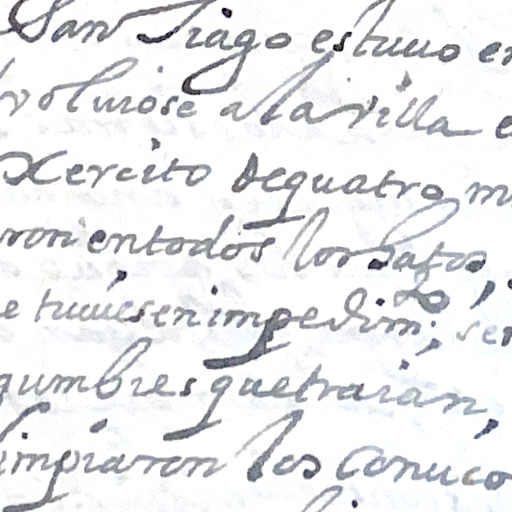 San Tiago estuuo en
voluiose a la villa e
Xercito de quatro m
ron en todos los hatos,
e tuuiesen impedim.to; se
gumbres que traian,
limpiaron los conuco